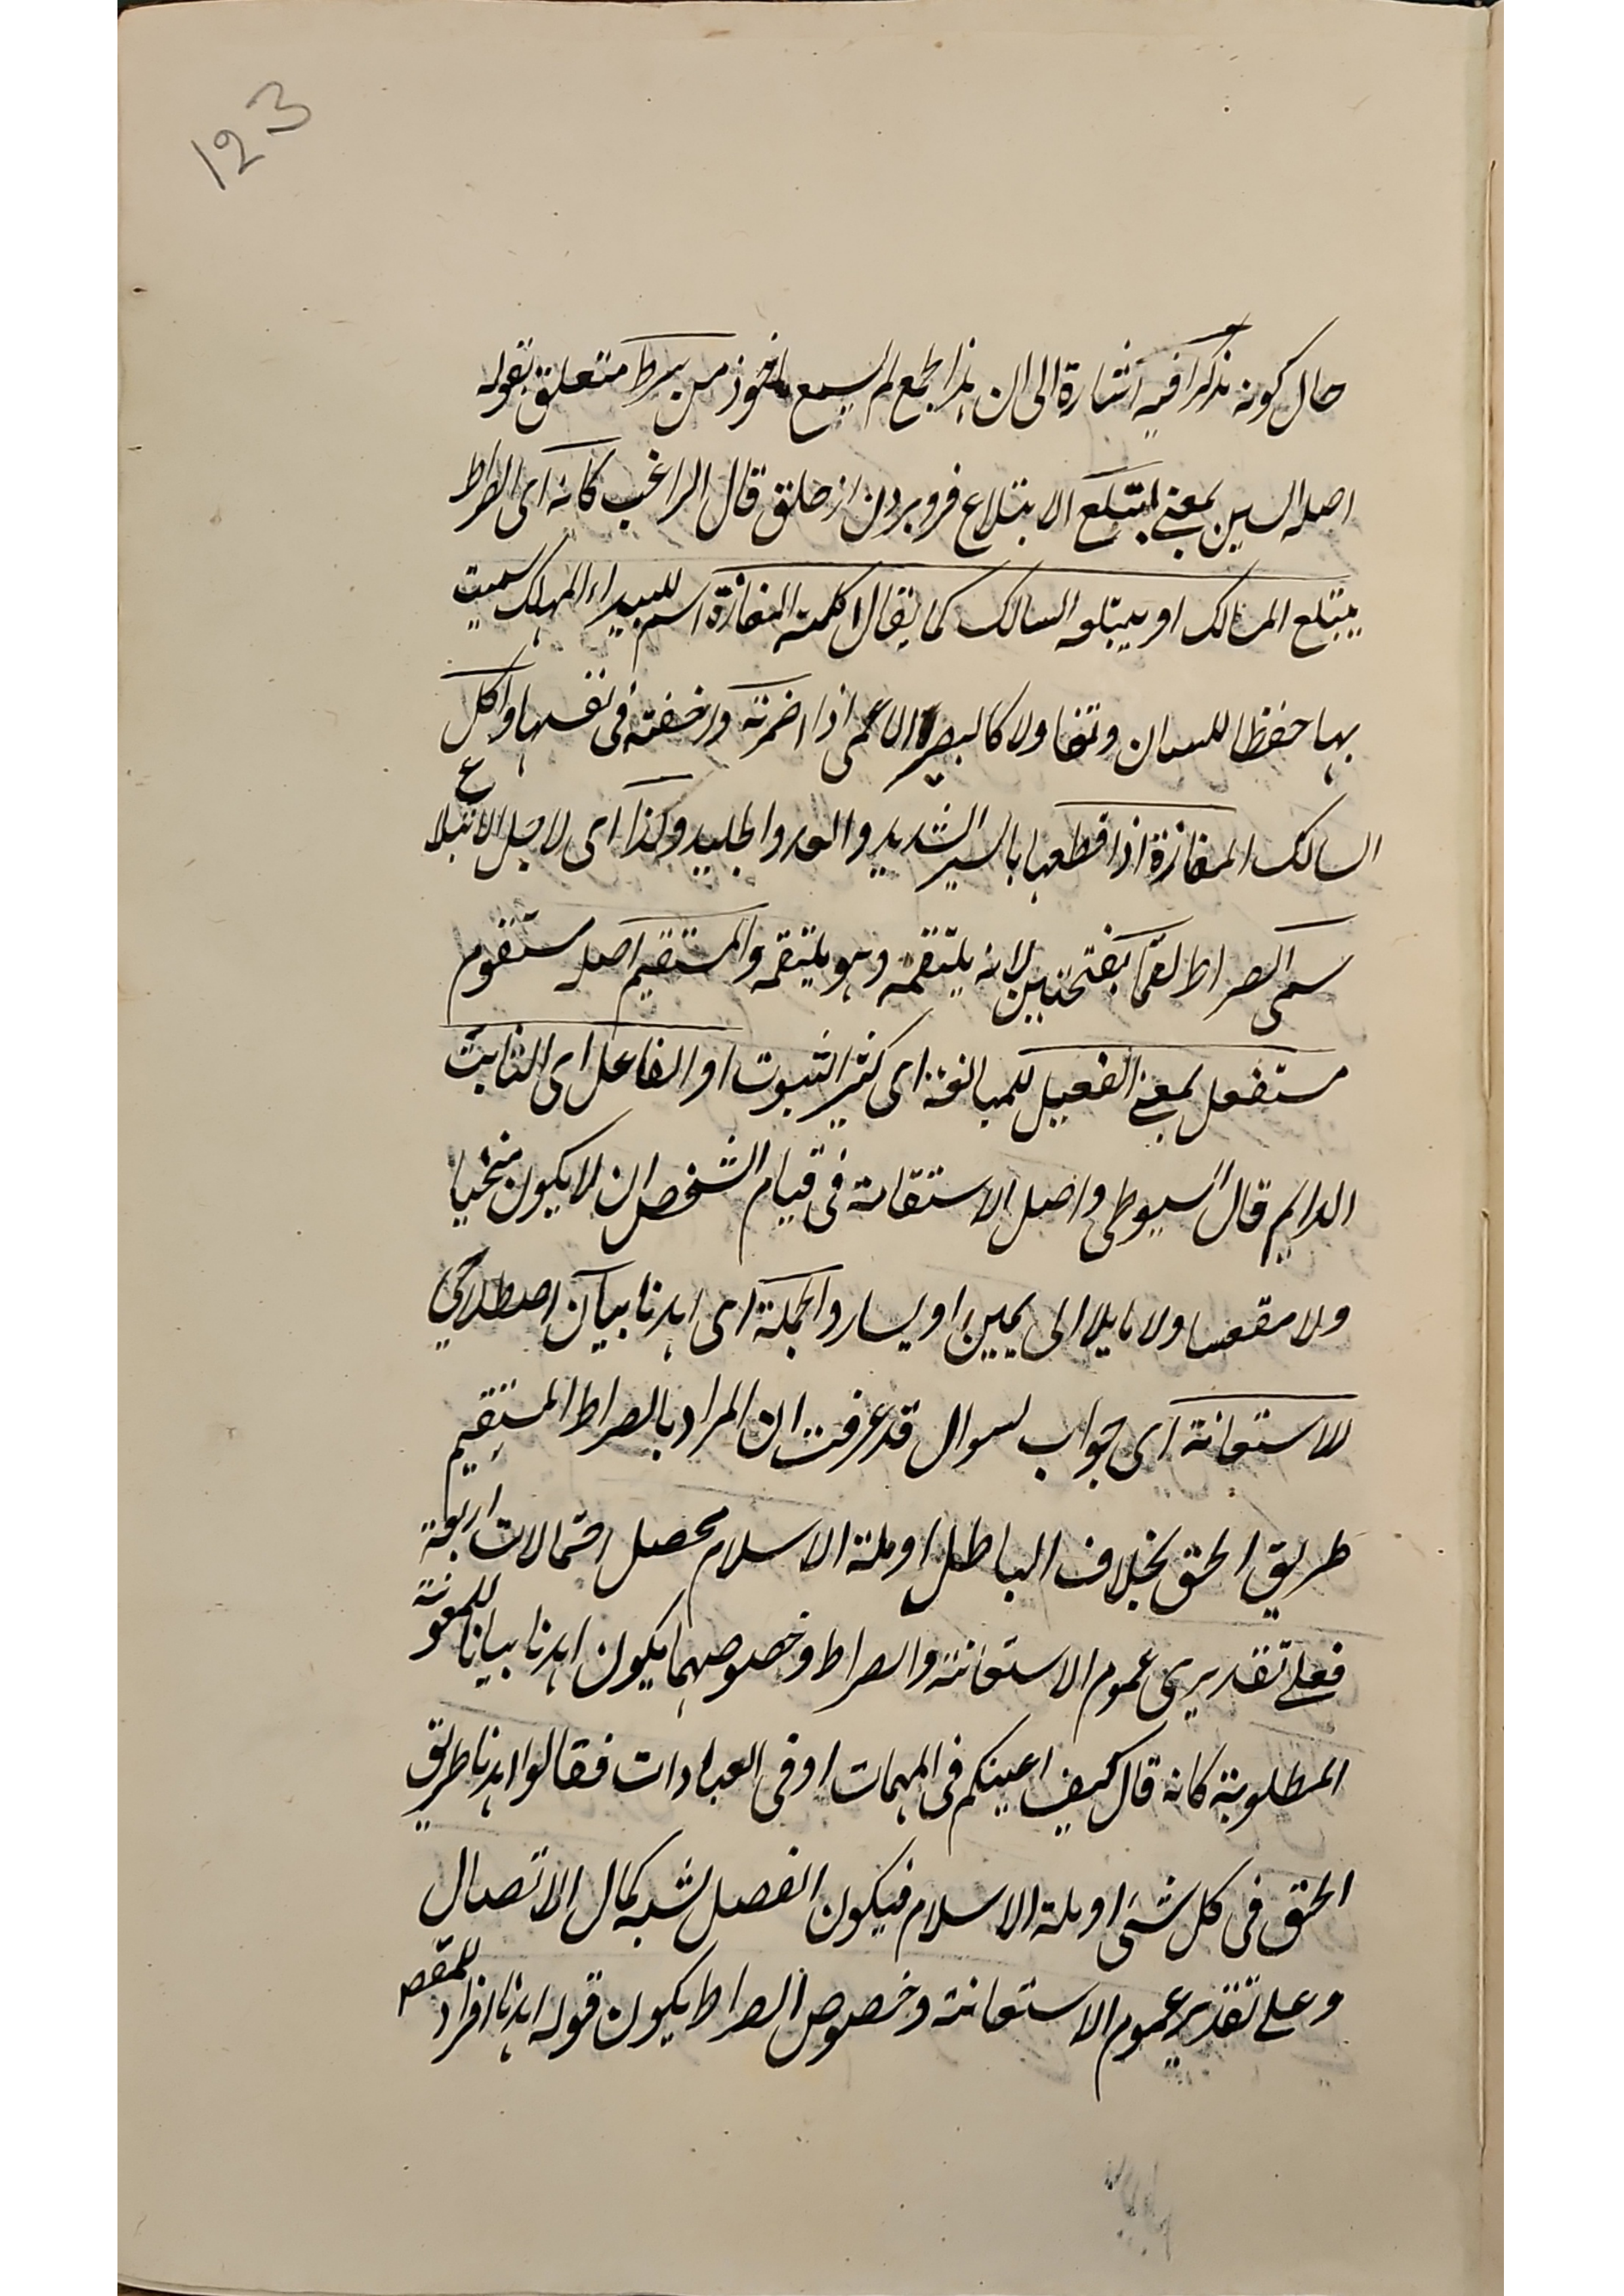 123
حال كونه مذكرا فيه اشارة الى ان هذا الجمع لم يسمع ماخوذ من سرط متعلق بقوله
اصله السين بمعنى ابتلع الابتلاع فرو بردن از حلق قال الراغب كانه اى الصراط
يبتلع السالك او يبتلعه السالك كما يقال اكلمته المفازة اسم للبيداء المهلك سميت
بها حفظا للسان وتفاولا كالبصير للاعمى اذا اضمرته وا خفته فى نفسها واكل
السالك المفازة اذا قطعها بالسير الشديد والعدو الجليد ولذا اى لاجل الابتلاع
سمى الصراط لقما بفتحتين لانه يلتقمه وهو يلتقمه والمستقيم اصله مستقوم
مستفعل بمعنى الفعيل للمبالغة اى كثير الثبوت او الفاعل اى الثابت
الدايم قال السيوطى واصل الاستقامة فى قيام الشخص ان لا يكون منحنيا
ولا مقعسا ولا مايلا الى يمين او يسار والجملة اى اهدنا بيان اصطلاحى
للاستعانة اى جواب لسوال قد عرفت ان المراد بالصراط المستقيم
طريق الحق بخلاف الباطل او ملة الاسلام محصل احتمالات اربعة
فعلى تقديرى عموم الاستعانة والصراط وخصوصهما يكون اهدنا بيانا للمعونة
المطلوبة كانه قال كيف اعينكم فى المهمات او فى العبادات فقالوا اهدنا طريق
الحق فى كل شئ او ملة الاسلام فيكون الفصل لشبه كمال الاتصال
وعلى تقدير عموم الاستعانة وخصوص الصراط يكون قوله اهدنا افراد للمقص